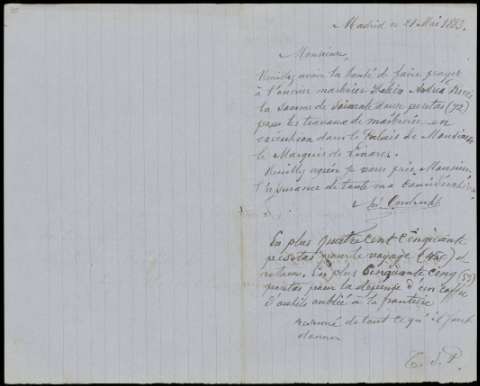 Madrid ce 21 Mai 1883.
Monsieur,
Veuillez avoir la bonté de faire payer
à l'ouvrier marbrier Andréa
la somme de soixante douze pesetas (72)
pour les travaux de marbrerie en
exécution dans le Palais de Monsieur
le Marquis de Linares.
Veuillez agréer je vous prie, Monsieur,
l'assurance de toute ma considération
En plus quatre cent cinquante
pesetas pour le voyage et
retour. En plus Cinquante cinq (55)
pesetas pour la dépense d'un caisse
d'outils oublié à la frontière
de tout ce qu'il faut
donner